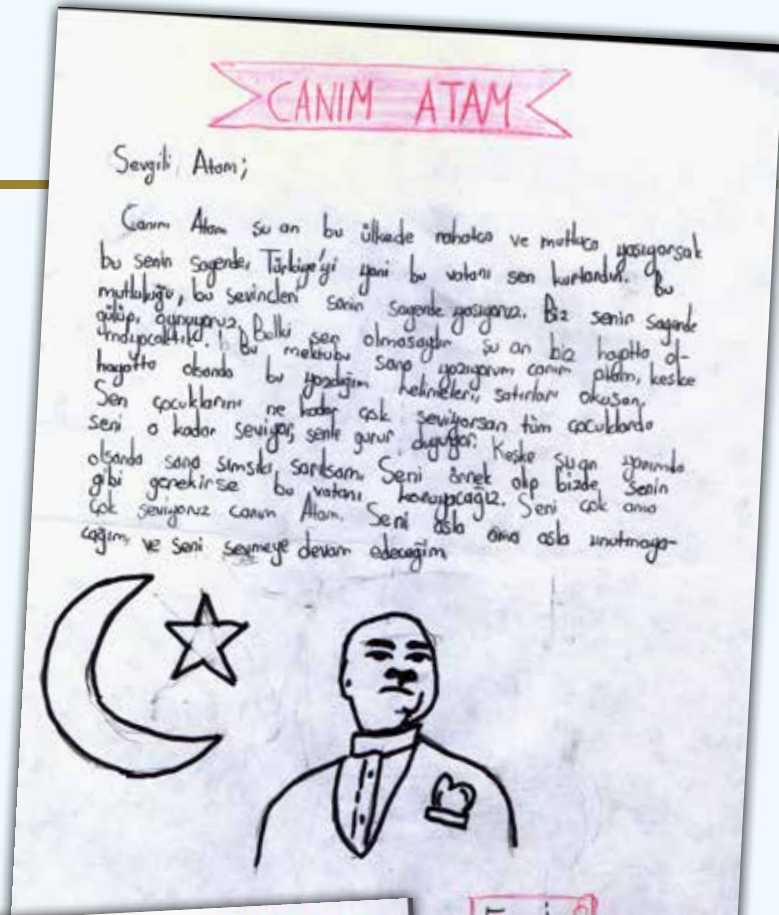 CANIM ATAM
Sevgili Atam;
Canım Atam şu an bu ülkede rahatça ve mutluca yaşıyorsak
bu senin sayende, Türkiye'yi yani bu vatanı sen kurtardın. Bu
mutluluğu, bu sevinçleri senin sayende yaşıyoruz. Biz senin sayende
gülüp, oynuyoruz. Belki sen olmasaydın şu an biz hayatta ol-
mayacaktık. Bu mektubu sana yazıyorum canım Atam, keşke
hayatta olsanda bu yazdığım kelimeleri, satırları okusan.
Sen çocuklarını ne kadar çok seviyorsan tüm çocuklarda
seni o kadar seviyor, senle gurur duyuyor. Keşke şu an yanımda
olsanda sana sımsıkı sarılsam. Seni örnek alıp bizde senin
gibi gerekirse bu vatanı koruyacağız. Seni çok ama
çok seviyoruz canım Atam. Seni asla ama asla unutmaya-
cağım, ve seni sevmeye devam edeceğim